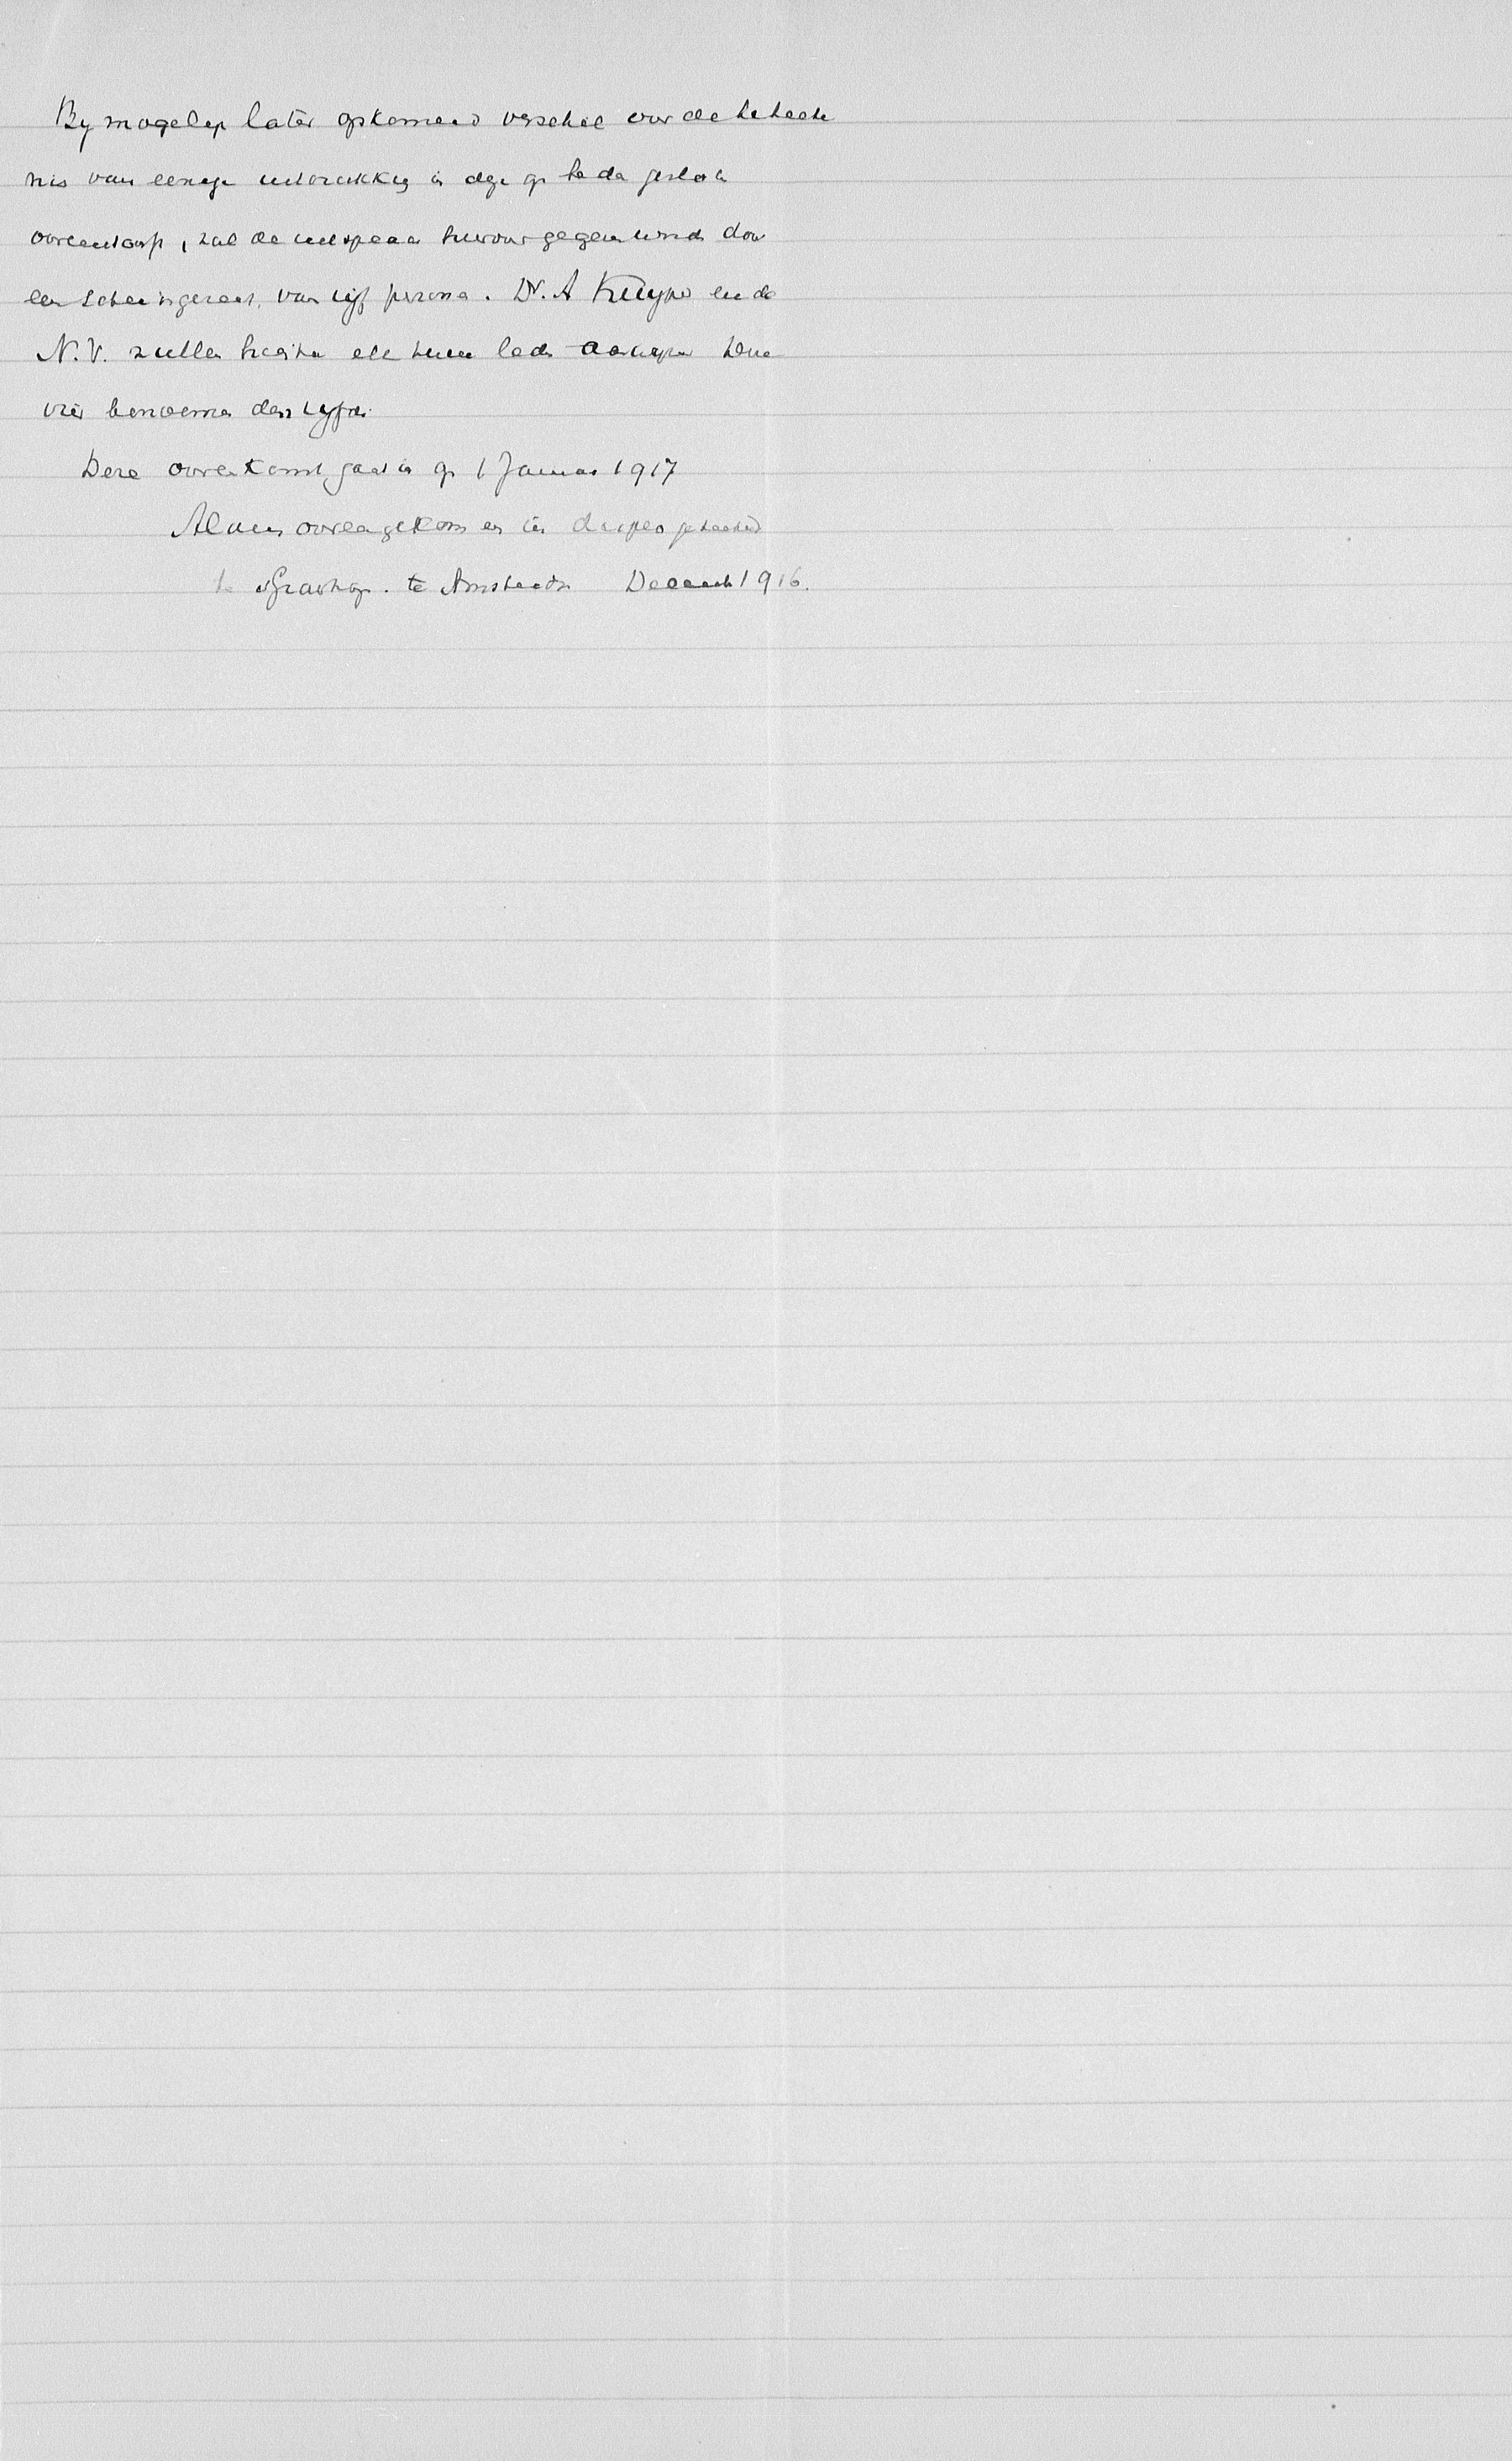 By mogelijk later opkomend verschil over de beteeke
nis van eenige uitdrukking in deze op heden gesloten
overeenkomst, zal de uitspraak hierover gegeven worden door
een scheidsgerecht van vijf personen. Dr. A Kuyper en de
N.V. zullen hierin elk twee leden aanwijzen. Deze
vier benoemen den vijfden.
Deze overenkomst gaat in op 1 Januari 1917
Aldus overeengekomen en in duplo geteekend
te 'sGravenhage. te Amsterdam December 1916.